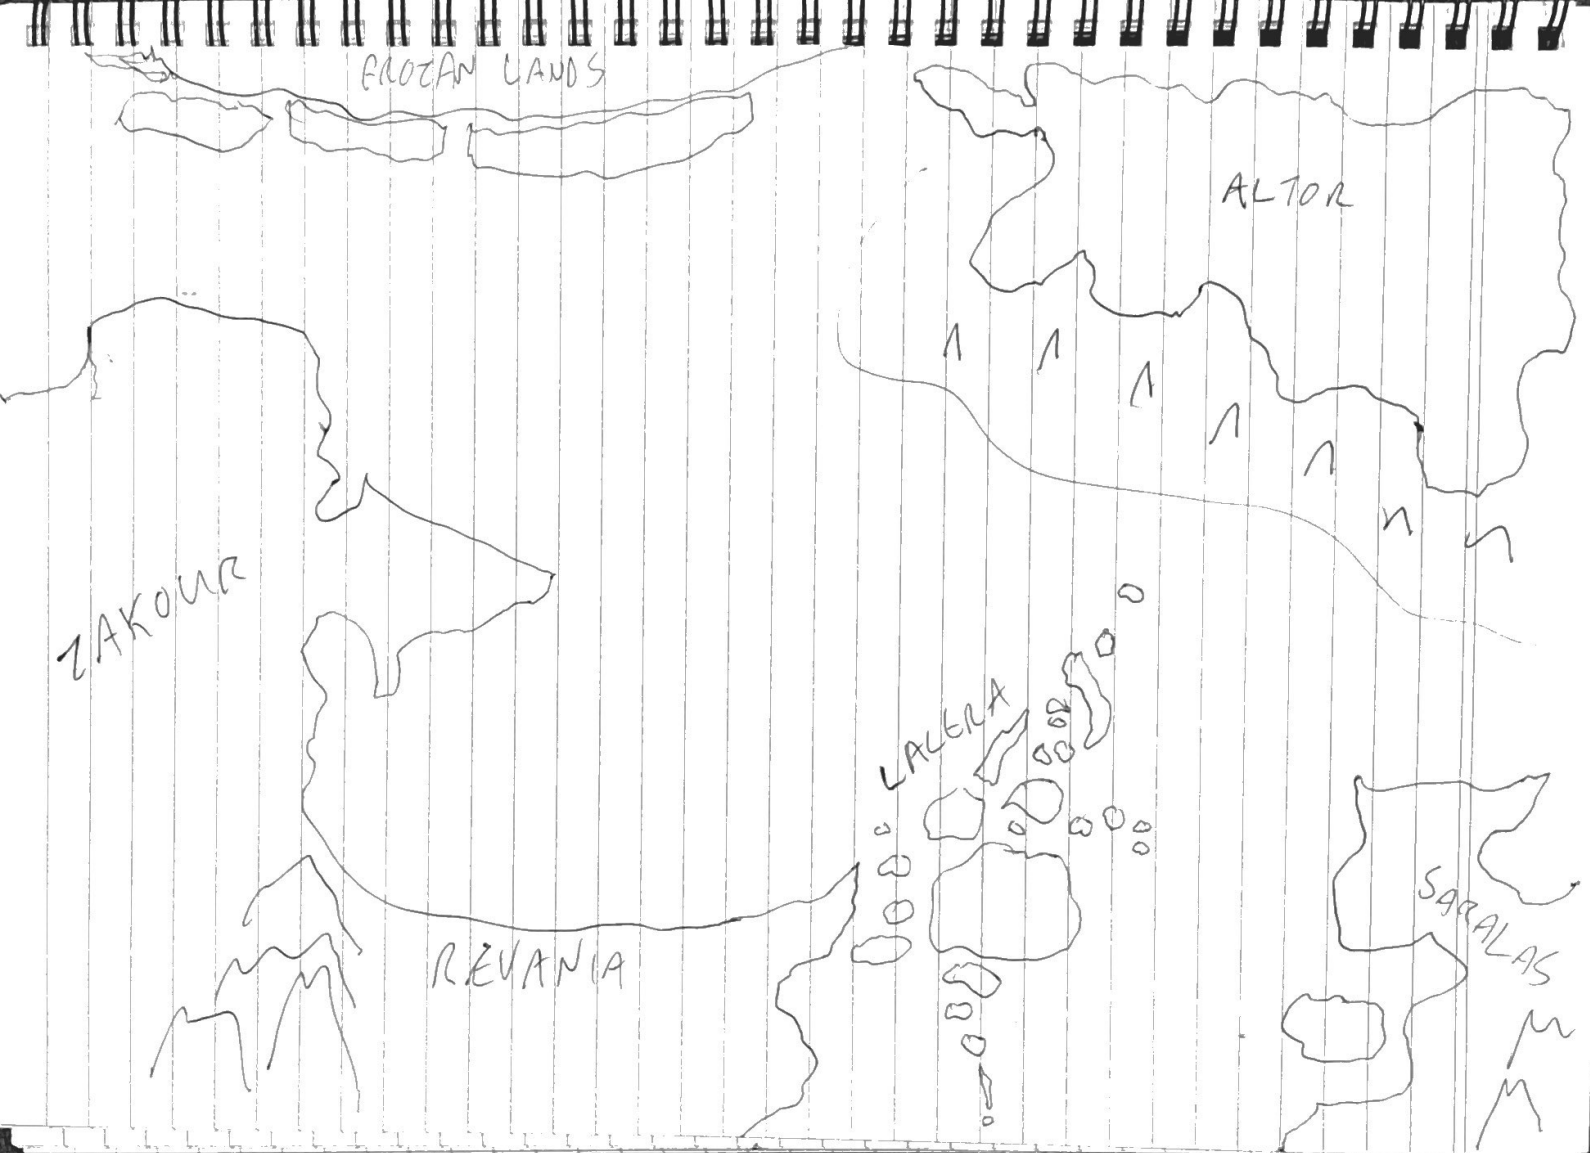 EROZAN LANDS
ALTOR
ZAKOUR
LALERA
SARALAS
REVANIA